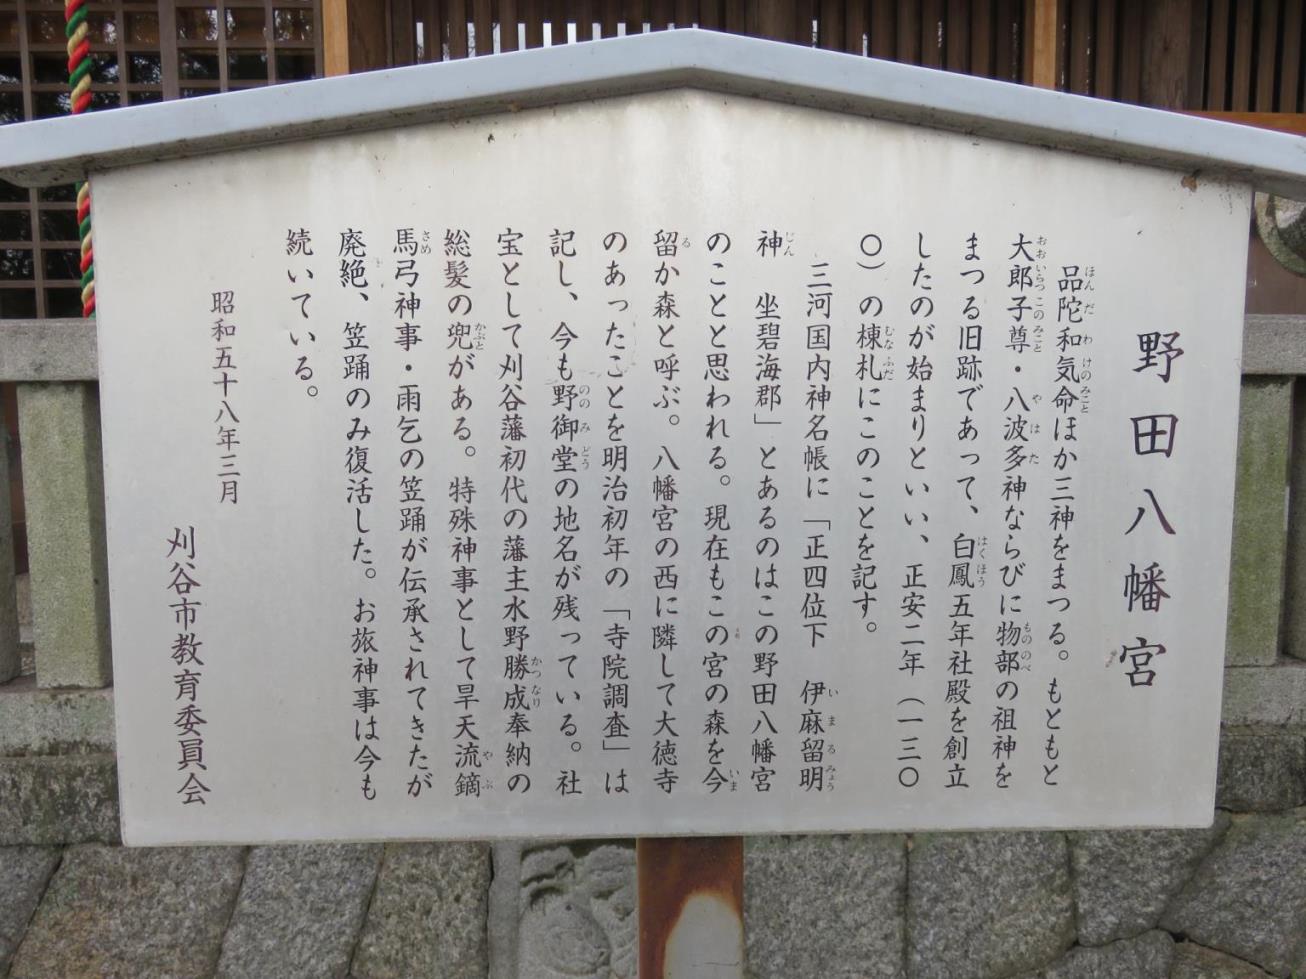 野田八幡宮
品陀和気命ほか三神をまつる。もともと
大郎子尊・八波多神ならびに物部の祖神を
まつる旧跡であって、白鳳五年社殿を創立
したのが始まりといい、正安二年（一三〇
〇）の棟札にこのことを記す。
三河国内神名帳に「正四位下　伊麻留明
神　坐碧海郡」とあるのはこの野田八幡宮
のことと思われる。現在もこの宮の森を今
留か森と呼ぶ。八幡宮の西に隣して大徳寺
のあったことを明治初年の「寺院調査」は
記し、今も野御堂の地名が残っている。社
宝として刈谷藩初代の藩主水野勝成奉納の
総髪の兜がある。特殊神事として旱天流鏑
馬弓神事・雨乞の笠踊が伝承されてきたが
廃絶、笠踊のみ復活した。お旅神事は今も
続いている。
昭和五十八年三月
刈谷市教育委員会